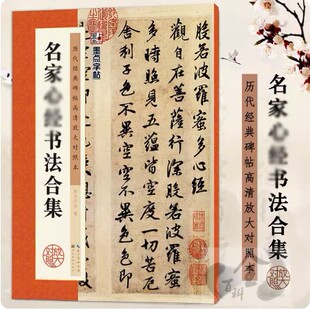 墨点字帖
名家
书法合集
历代经典碑帖高清放大对照本
般若波羅蜜多心經
觀自在菩薩行深般若波羅蜜
多時照見五蘊皆空度一切苦厄
舍利子色不異空空不異色色即
放大
对照
名家
书法合集
历代经典碑帖高清放大对照本
放大
对照